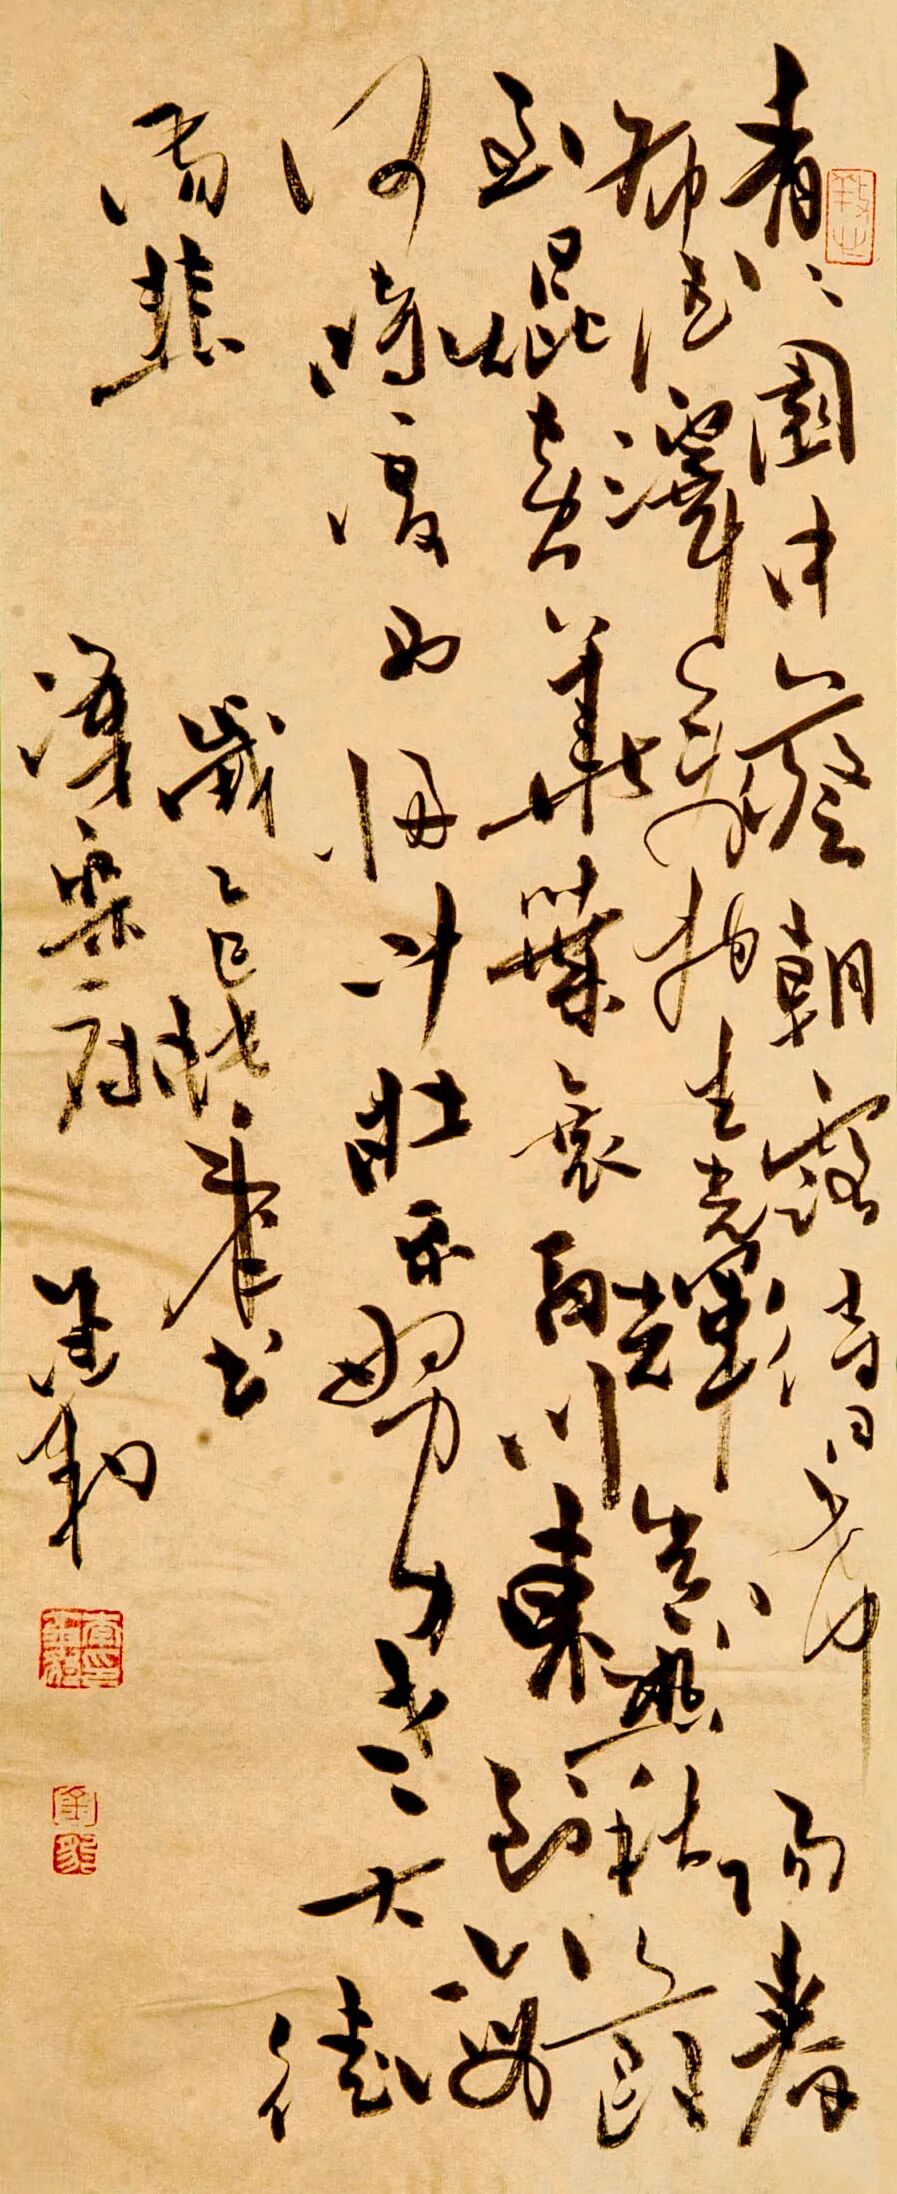 青々園中葵朝露待日晞陽春
布德澤萬物生光輝常恐秋節
至焜黃華葉衰百川東到海
何時復西歸少壯不努力老大徒
傷悲
歲乙巳書
漢樂府